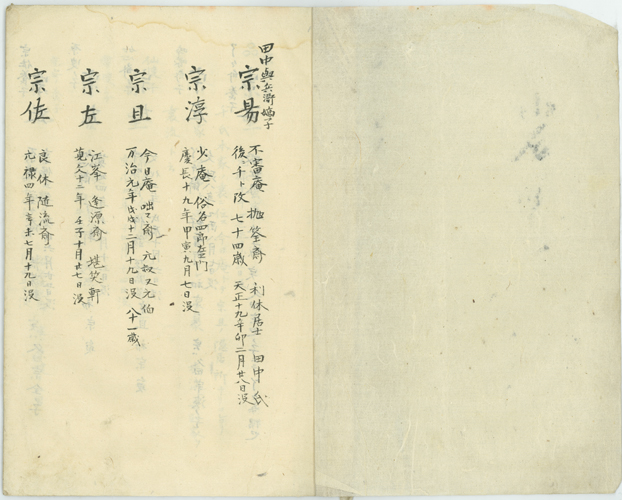 田中與兵衛嫡子
宗易
不審庵 抛筌斎 利休居士 田中氏
後ニ千ト改 七十四歳 天正十九年卯二月廿八日没
宗淳
少庵 俗名四郎左衛門
慶長十九年甲寅九月七日没
宗旦
今日庵 咄々斎 元叔又元伯
万治元年戊戌十二月十九日没 八十一歳
宗左
江岑 逢源斎 堪笑軒
寛文十二年壬子十月廿七日没
宗佐
良休 随流斎
元禄四年辛未七月十九日没